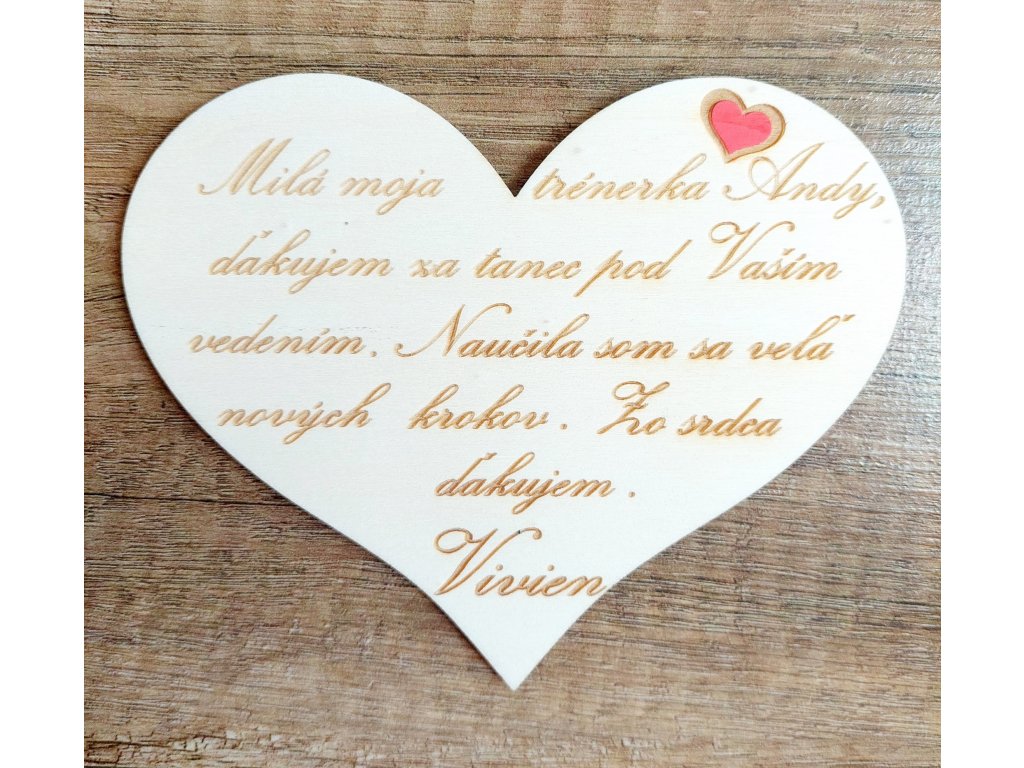 Milá moja trénerka Andy,
ďakujem za tanec pod Vaším
vedením. Naučila som sa veľa
nových krokov. Zo srdca
ďakujem.
Vivien